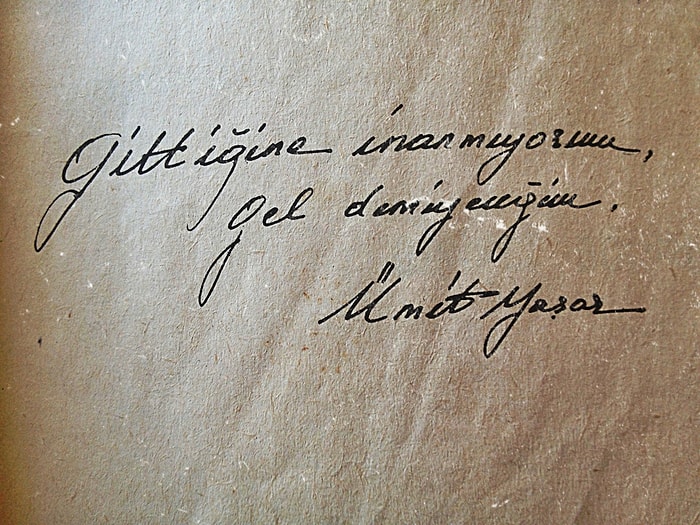 Gittiğine inanmıyorum,
gel demiyeceğim.
Ümit Yaşar